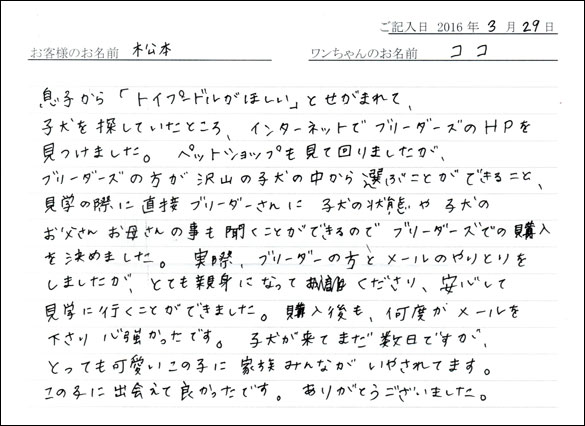 ご記入日 2016 年 3 月 29 日
お客様のお名前 松本 ワンちゃんのお名前 ココ
息子から「トイプードルがほしい」とせがまれて、
子犬を探していたところ、インターネットでブリーダーズのHPを
見つけました。 ペットショップも見て回りましたが、
ブリーダーズの方が沢山の子犬の中から選ぶことができること、
見学の際に直接ブリーダーさんに子犬の状態や子犬の
お父さんお母さんの事も聞くことができるのでブリーダーズでの購入
を決めました。 実際、ブリーダーの方とメールのやりとりを
しましたが、とても親身になって くださり、安心して
見学に行くことができました。購入後も、何度かメールを
下さり心強かったです。 子犬が来てまだ数日ですが、
とっても可愛いこの子に家族みんながいやされてます。
この子に出会えて良かったです。 ありがとうございました。